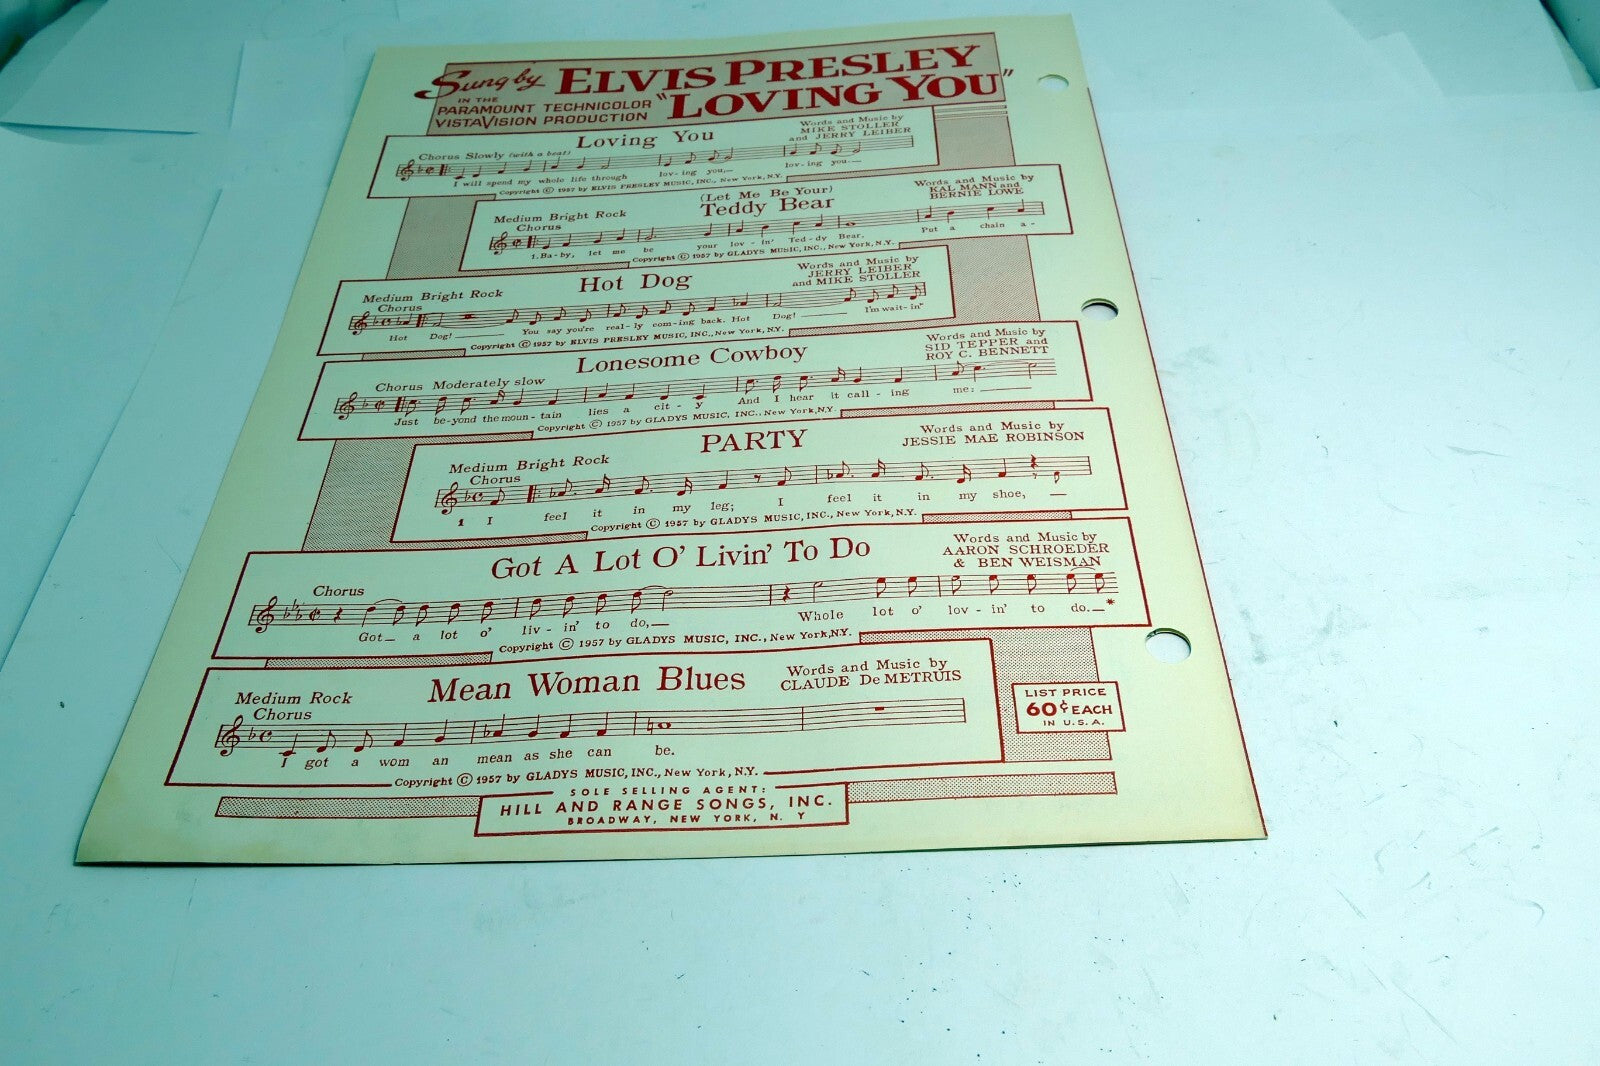 Sung by ELVIS PRESLEY
IN THE
PARAMOUNT TECHNICOLOR
VISTAVISION PRODUCTION
"LOVING YOU"
Loving You
Words and Music by
MIKE STOLLER
and JERRY LEIBER
Chorus Slowly (with a beat)
I will spend my whole life through lov-ing you,— lov-ing you.—
Copyright © 1957 by ELVIS PRESLEY MUSIC, INC., New York, N.Y.
(Let Me Be Your)
Teddy Bear
Words and Music by
KAL MANN and
BERNIE LOWE
Medium Bright Rock
Chorus
1. Ba-by, let me be your lov-in' Ted-dy Bear. Put a chain a-
Copyright © 1957 by GLADYS MUSIC, INC., New York, N.Y.
Hot Dog
Words and Music by
JERRY LEIBER
and MIKE STOLLER
Medium Bright Rock
Chorus
Hot Dog! You say you're real-ly com-ing back. Hot Dog! I'm wait-in'
Copyright © 1957 by ELVIS PRESLEY MUSIC, INC., New York, N.Y.
Lonesome Cowboy
Words and Music by
SID TEPPER and
ROY C. BENNETT
Chorus Moderately slow
Just be-yond the moun-tain lies a cit-y And I hear it call-ing me:
Copyright © 1957 by GLADYS MUSIC, INC., New York, N.Y.
PARTY
Words and Music by
JESSIE MAE ROBINSON
Medium Bright Rock
Chorus
1 I feel it in my leg; I feel it in my shoe, —
Copyright © 1957 by GLADYS MUSIC, INC., New York, N.Y.
Got A Lot O' Livin' To Do
Words and Music by
AARON SCHROEDER
& BEN WEISMAN
Chorus
Got— a lot o' liv-in' to do,— Whole lot o' lov-in' to do.—*
Copyright © 1957 by GLADYS MUSIC, INC., New York, N.Y.
Mean Woman Blues
Words and Music by
CLAUDE De METRUIS
Medium Rock
Chorus
I got a wom an mean as she can be.
Copyright © 1957 by GLADYS MUSIC, INC., New York, N.Y.
LIST PRICE
60¢ EACH
IN U.S.A.
SOLE SELLING AGENT:
HILL AND RANGE SONGS, INC.
BROADWAY, NEW YORK, N. Y